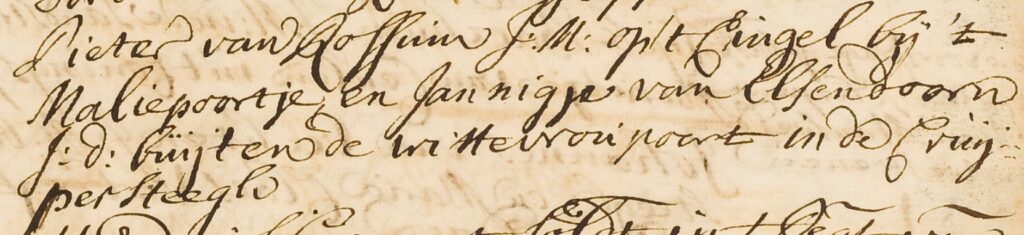 Pieter van Rossum J: M: op't Cingel bij 't
Maliepoortje, en Jannigje van Elsendoorn
J: d: buijten de wittevrou poort in de Cruij-
persteegh